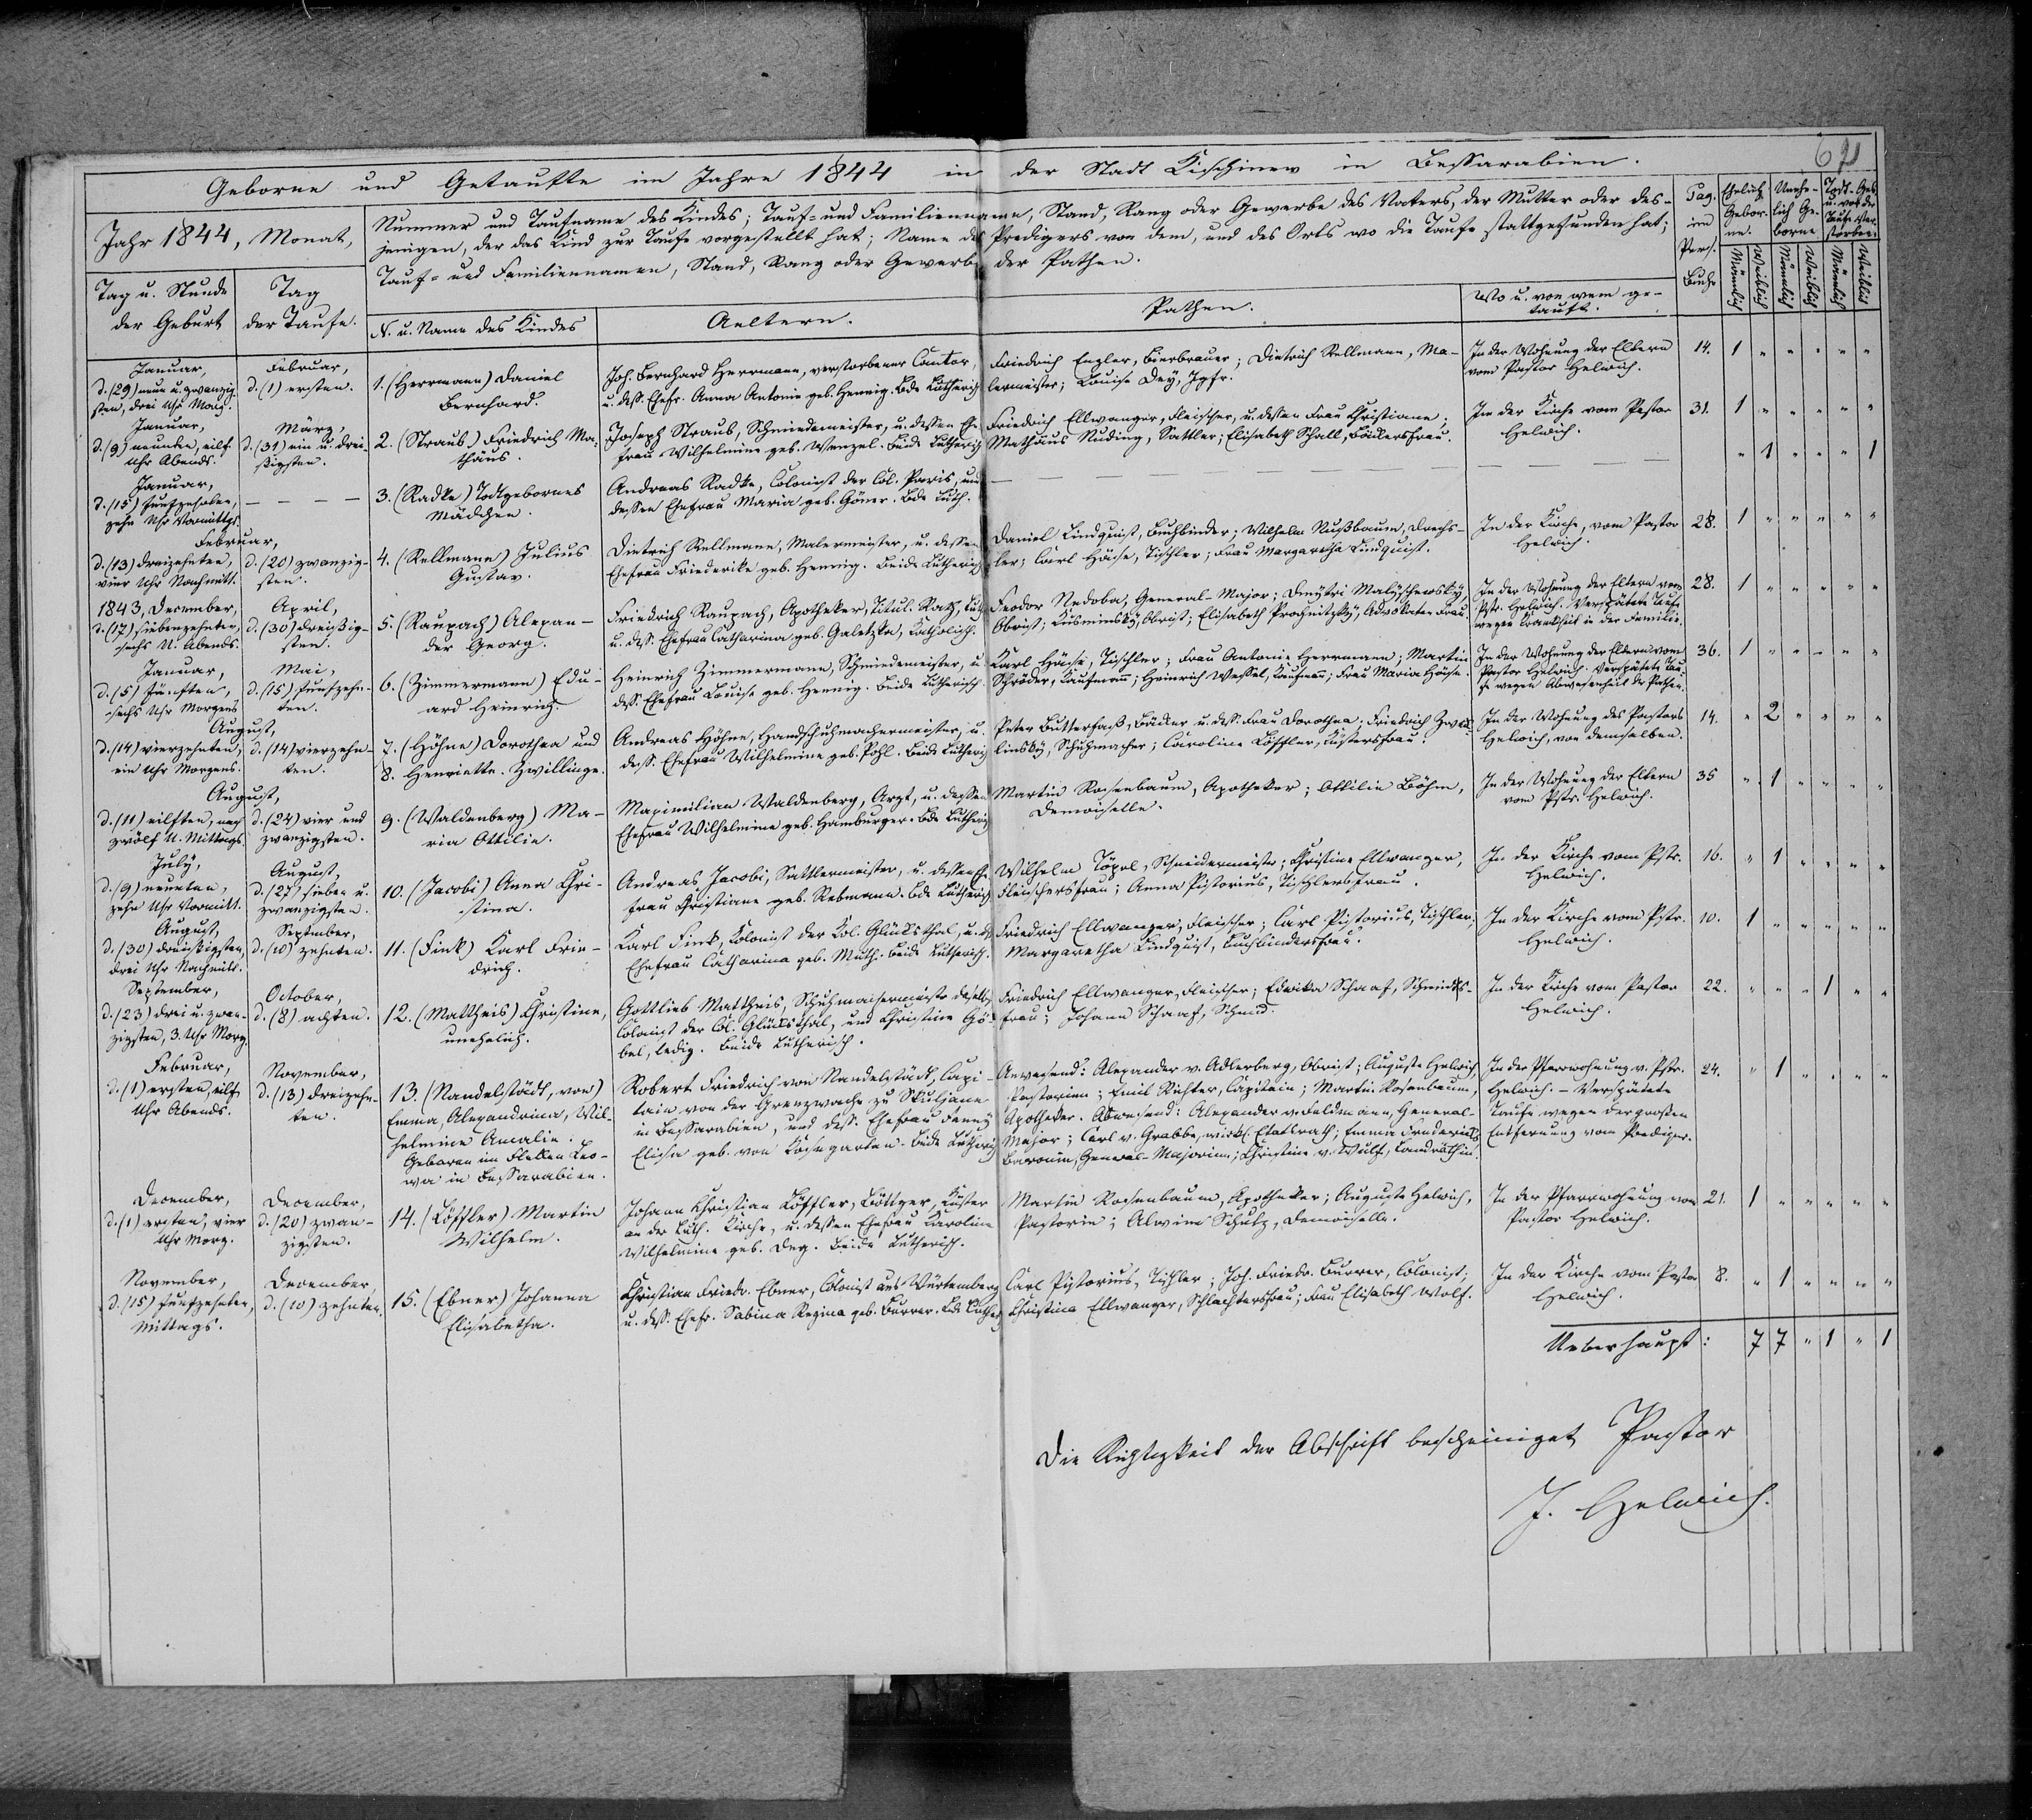 Geborne und Getaufte im Jahre 1844 in der Stadt Kischinew in Bessarabien.
Jahr 1844, Monat,
Tag u. Stunde der Geburt
Tag der Taufe.
Nummer und Taufname des Kindes; Tauf- und Familienname, Stand, Rang oder Gewerbe des Vaters, der Mutter oder des-
jenigen, der das Kind zur Taufe vorgestellt hat; Name des Predigers von dem, und des Orts wo die Taufe stattgefunden hat;
Tauf- und Familiennamen, Stand, Rang oder Gewerbe der Pathen.
N. u. Name des Kindes
Aeltern.
Pathen.
Wo u. von wem ge-
tauft.
Pag. im Pers. Buche
Ehelich Gebor-
ne.
Unehe-
lich Ge-
borne
Todt-Geb. u. vor der Taufe Ver-
storben.
Männlich
Weiblich
Männlich
Weiblich
Männlich
Weiblich
Januar,
d. (29) neun u. zwanzig-
sten, drei Uhr Morg.
Februar,
d. (1) ersten.
1. (Herrmann) Daniel
Bernhard.
Joh. Bernhard Herrmann, verstorbener Cantor,
u. dess. Ehefr. Anna Antonie geb. Hennig. Bde Lutherisch
Friedrich Engler, Bierbrauer; Dietrich Rellmann, Ma-
lermeister; Louise Dey, Jgfr.
In der Wohnung der Eltern
vom Pastor Helwich.
14. 1 " " " " "
Januar,
d. (9) neunten, eilf
Uhr Abends.
März,
d. (31) ein u. drei-
ßigsten.
2. (Straub) Friedrich Ma-
thäus.
Joseph Straub, Schmiedemeister, u. dessen Ehe-
frau Wilhelmine geb. Wenzel. Beide Lutherisch
Friedrich Ellwanger, Fleischer, u. dessen Frau Christiane;
Mathäus Nuding, Sattler; Elisabeth Schall, Bäckersfrau.
In der Kirche vom Pastor
Helwich.
31. 1 " " " " "
Januar,
d. (15) funfzehnten,
zehn Uhr Vormittgs.
— — —
3. (Radke) Todtgebornes
Mädchen.
Andreas Radke, Colonist der Col. Paris, und
dessen Ehefrau Maria geb. Göner. Bde Luth.
" 1 " " " 1
Februar,
d. (13) dreizehnten,
vier Uhr Nachmitt.
d. (20) zwanzig-
sten.
4. (Rellmann) Julius
Gustav.
Dietrich Rellmann, Malermeister, u. dessen
Ehefrau Friederike geb. Hennig. Beide Lutherisch
Daniel Lindquist, Buchbinder; Wilhelm Nußbaum, Drechs-
ler; Carl Häcse, Tischler; Frau Margaretha Lindquist.
In der Kirche, vom Pastor
Helwich.
28. 1 " " " " "
1843, December,
d. (17) siebenzehnten,
sechs U. Abends.
April,
d. (30) dreißig-
sten.
5. (Raupach) Alexan-
der Georg.
Friedrich Raupach, Apotheker, Titul. Rath, Luth.
u. dess. Ehefrau Catharina geb. Galetzka, Katholisch.
Feodor Nedoba, General-Major; Dmytri Malyschewsky,
Obrist; Kusminsky, Obrist; Elisabeth Prochnitzky, Advokaten Frau.
In der Wohnung der Eltern vom
Pstr. Helwich. Verspätete Taufe
wegen Krankheit in der Familie.
28. 1 " " " " "
Januar,
d. (5) fünften,
sechs Uhr Morgens
Mai,
d. (15) funfzehn-
ten.
6. (Zimmermann) Edu-
ard Heinrich.
Heinrich Zimmermann, Schmiedemeister, u.
dess. Ehefrau Louise geb. Hennig. Beide Lutherisch.
Karl Häcse, Tischler; Frau Antonie Herrmann; Martin
Schröder, Kaufmann; Heinrich Wessel, Kaufmann; Frau Maria Häcse.
In der Wohnung der Eltern vom
Pastor Helwich. Verspätete Tau-
fe wegen Abwesenheit der Pathen.
36. 1 " " " " "
August,
d. (14) vierzehnten,
ein Uhr Morgens.
d. (14) vierzehn-
ten.
7. (Höhne) Dorothea und
8. Henriette. Zwillinge.
Andreas Höhne, Handschuhmachermeister, u.
dess. Ehefrau Wilhelmine geb. Pohl. Beide Lutherisch
Peter Butterfaß, Bäcker u. dess. Frau Dorothea; Friedrich
linsky, Schuhmacher; Caroline Löffler, Küstersfrau.
In der Wohnung des Pastors
Helwich, von demselben.
14. " 2 " " " "
August,
d. (11) eilften, nach
zwölf U. Mittags.
d. (24) vier und
zwanzigsten.
9. (Waldenberg) Ma-
ria Ottilie.
Maximilian Waldenberg, Arzt, u. dessen
Ehefrau Wilhelmine geb. Hamburger. Bde Lutherisch
Martin Rosenbaum, Apotheker; Ottilie Böhm,
Demoiselle.
In der Wohnung der Eltern
vom Pstr. Helwich.
35 " 1 " " " "
July,
d. (9) neunten,
zehn Uhr Vormitt.
August,
d. (27) sieben u.
zwanzigsten.
10. (Jacobi) Anna Chri-
stina.
Andreas Jacobi, Sattlermeister, u. dessen Ehe-
frau Christiane geb. Rebmann. Bde Lutherisch
Wilhelm Töpel, Schneidermeister; Christine Ellwanger,
Fleischersfrau; Anna Pistorius, Tischlersfrau.
In der Kirche vom Pstr.
Helwich.
16. " 1 " " " "
August,
d. (30) dreißigsten,
drei Uhr Nachmitt.
September,
d. (10) zehnten.
11. (Fink) Karl Frie-
drich.
Karl Fink, Kolonist der Kol. Glücksthal, u. dess.
Ehefrau Catharina geb. Muth. Beide Lutherisch.
Friedrich Ellwanger, Fleischer; Carl Pistorius, Tischler;
Margaretha Lindquist, Buchbindersfrau.
In der Kirche vom Pstr.
Helwich.
10. 1 " " " " "
September,
d. (23) drei u. zwan-
zigsten, 3. Uhr Morg.
October,
d. (8) achten.
12. (Mattheis) Christine,
unehelich.
Gottlieb Mattheis, Schuhmachermeister,
Colonist der Col. Glücksthal, und Christine Gö-
bel, ledig. Beide Lutherisch.
Friedrich Ellwanger, Fleischer; Schaaf, Schmieds-
frau; Johann Schaaf, Schmid.
In der Kirche vom Pastor
Helwich.
22. " " " 1 " "
Februar,
d. (1) ersten, eilf
Uhr Abends.
November,
d. (13) dreizehn-
ten.
13. (Nandelstädt, von)
Emma, Alexandrina, Wil-
helmine Amalie.
Geboren im Flecken Leo-
wa in Bessarabien.
Robert Friedrich von Nandelstädt, Capi-
tain von der Grenzwache zu Skuljane
in Bessarabien, und dess. Ehefrau Fanny
Elisa geb. von Kosegarten. Beide Lutherisch
Anwesend: Alexander v. Adlerberg, Obrist; Auguste Helwich,
Pastorin; Emil Richter, Capitain; Martin Rosenbaum,
Apotheker. Abwesend: Alexander v. Feldmann, General-
Major; Carl v. Grabbe, wirkl. Etatsrath; Emma Frederiks,
Baronin, General-Majorin; Christine v. Wulf, Landräthin.
In der Pfarrwohnung v. Pstr.
Helwich. — Verspätete
Taufe wegen der großen
Entfernung vom Prediger.
24. " 1 " " " "
December,
d. (1) ersten, vier
Uhr Morg.
December,
d. (20) zwan-
zigsten.
14. (Löffler) Martin
Wilhelm.
Johann Christian Löffler, Böttger, Küster
an der Luth. Kirche, u. dessen Ehefrau Karoline
Wilhelmine geb. Deg. Beide Lutherisch.
Martin Rosenbaum, Apotheker; Auguste Helwich,
Pastorin; Alwine Schulz, Demoiselle.
In der Pfarrwohnung vom
Pastor Helwich.
21. 1 " " " " "
November,
d. (15) funfzehnten,
Mittags.
December,
d. (10) zehnten.
15. (Ebner) Johanna
Elisabetha.
Christian Friedr. Ebner, Colonist aus Würtemberg
u. dess. Ehefr. Sabina Regina geb. Burrer. Bde Lutherisch
Carl Pistorius, Tischler; Joh. Friedr. Burrer, Colonist;
Christina Ellwanger, Schlachtersfrau; Frau Elisabeth Wolf.
In der Kirche vom Pastor
Helwich.
8. " 1 " " " "
Ueberhaupt: 7 7 " 1 " 1
Die Richtigkeit der Abschrift bescheiniget Pastor
J. Helwich.